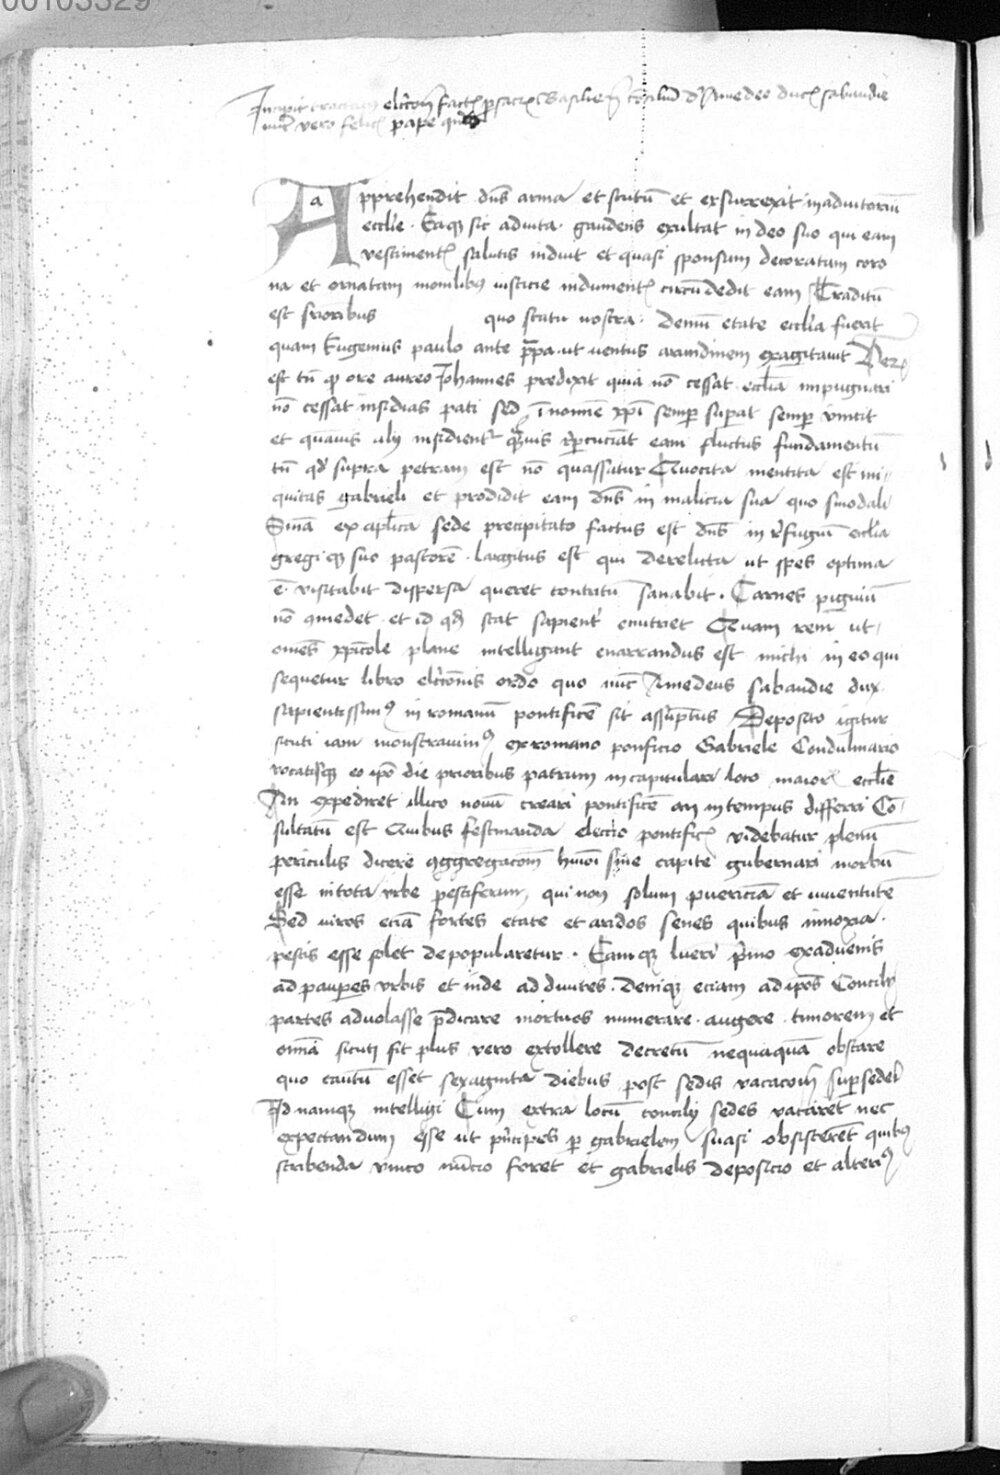 00103329
Incipit tractatus elcoīs facte p sacrū Basilieñ Cōsiliū d Amedeo duce sabaudie
nūc vero felice pape qūto
Apprehendit dn̄s arma et scutū et exsurrexit in adiutoriū
ecclie. Eaqꝫ sic adiuta. gaudens exultat in deo suo qui eam
vestimentꝭ salutis induit et quasi sponsam decoratam coro
na et ornatam monilibꝰ iusticie indumentꝭ circūdedit eam Traditū
est sroribus quo statu nostra. demū etate ecclia fuerit
quam Eugenius paulo ante p̄pa ut ventus arundinem exagitavit
est tn̄ qd ore aureo Johannes predixit quia nō cessat ecclia impugnari
nō cessat insidias pati sed ī nomīe xp̄i semp supat semp vincit
et quāuis alij insidientr̄ quis rꝑcuciāt eam fluctus fundamentū
tn̄ qd supra petram est nō quassatur Quocira mentita est ini-
quitas gabrieli et prodidit eam dn̄s in malicia sua quo sinodali
Sinā ex aplica sede precipitato factus est dn̄s in refugiū ecclia
gregi qꝫ suo pastorē. largitus est qui derelicta ut spes optima
ē. visitabit dispersa queret contritū sanabit. Carnes pinguiū
nō comedet. et id qd stat sapientr̄ enutriet Quam rem ut
omēs xpicole plane intelligant enarrandus est michi in eo qui
sequetur libro elcōnis ordo quo nūc Amedeus sabaudie dux.
sapientissimꝰ in romanū pontificē sit assūptus Deposito igitur
sicuti iam monstravimꝰ ex romano ponficio Gabriele Condulmario
vocatisqꝫ eo ipō die prioribus patrum in capitulari loco maiorꝭ ecclie
An expediret illico novū creari pontificē an in tempus differri Cō-
sultatū est Quibus festinanda electio pontificꝭ videbatur plenū
periculis dicere 9ggregacōem hmōi sine capite gubernari morbū
esse in tota urbe pestiferum qui non solum puericiā et iuventutē
Sed viros eciā fortes etate et aridos senes quibus innoxia.
pestis esse solet depopularetur. Eamqꝫ lueri p̄mo ex advenis
ad pauperes urbis et inde ad divites. deniqꝫ eciam ad ipōs Concilij
partes advolasse p̄dicare mortuos numerare. augere. timorem et
omīa sicuti fit plus vero extollere decretū nequaquā obstare
quo cautū esset sexaginta diebus post sedis vacacōem sup̄sederi
Id namqꝫ intelligi Cum extra locū concilij sedes vacaret nec
expectandum esse ut pn̄cipes p gabrielem suasi obsisterēt quibꝰ
scribenda unico nūcio foret et gabrielis deposicio et alteriꝰ